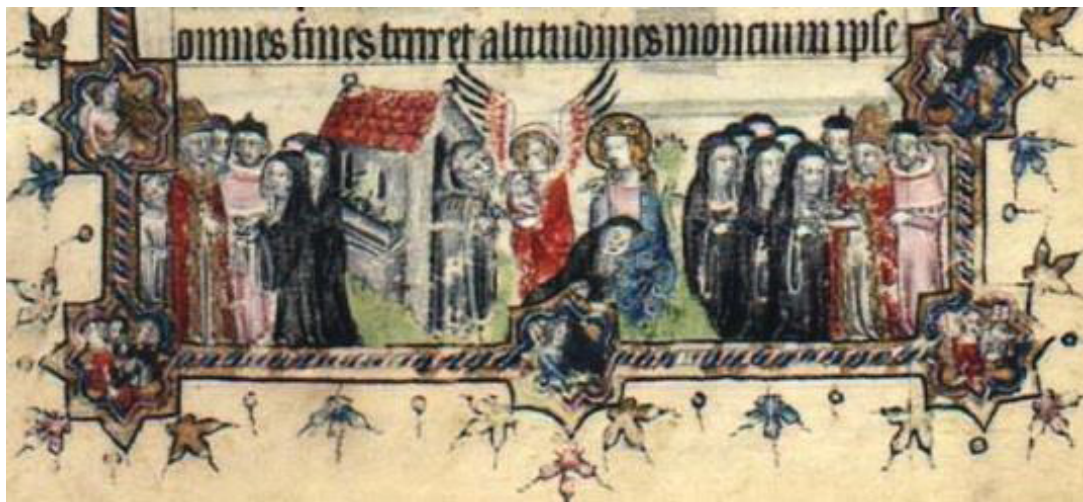 omnes fines terre et altitudines moncium ipse